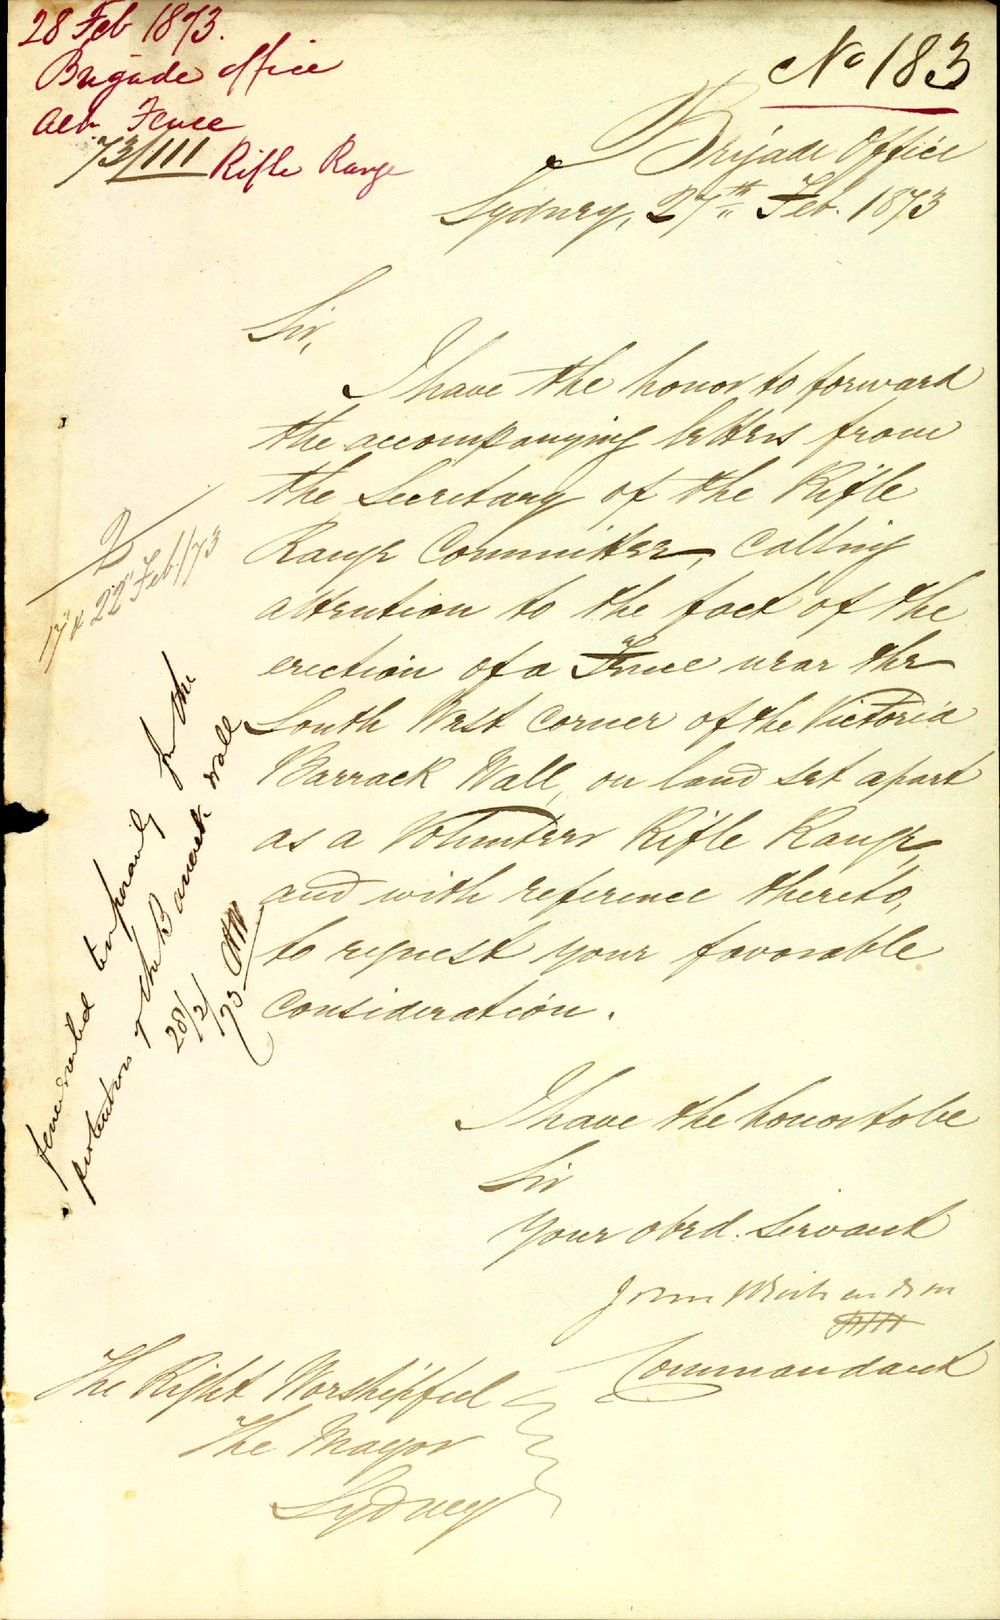 28 Feb 1873.
Brigade Office
Fence
73/111 Rifle Range
No 183
Brigade Office
Sydney, 27th Feb. 1873
Sir,
I have the honor to forward
the accompanying letters from
the Secretary of the Rifle
Range Committee, calling
attention to the fact of the
erection of a Fence near the
South West corner of the Victoria
Barrack Wall, on land set apart
as a Volunteer Rifle Range,
and with reference thereto,
to request your favorable
consideration.
2/
17 & 22 Feb./73
temporarily for the
protection of the Barrack wall
28/2/73
I have the honor to be
Sir
Your obed. Servant
John Richardson
Commandant
The Right Worshipful
The Mayor
Sydney